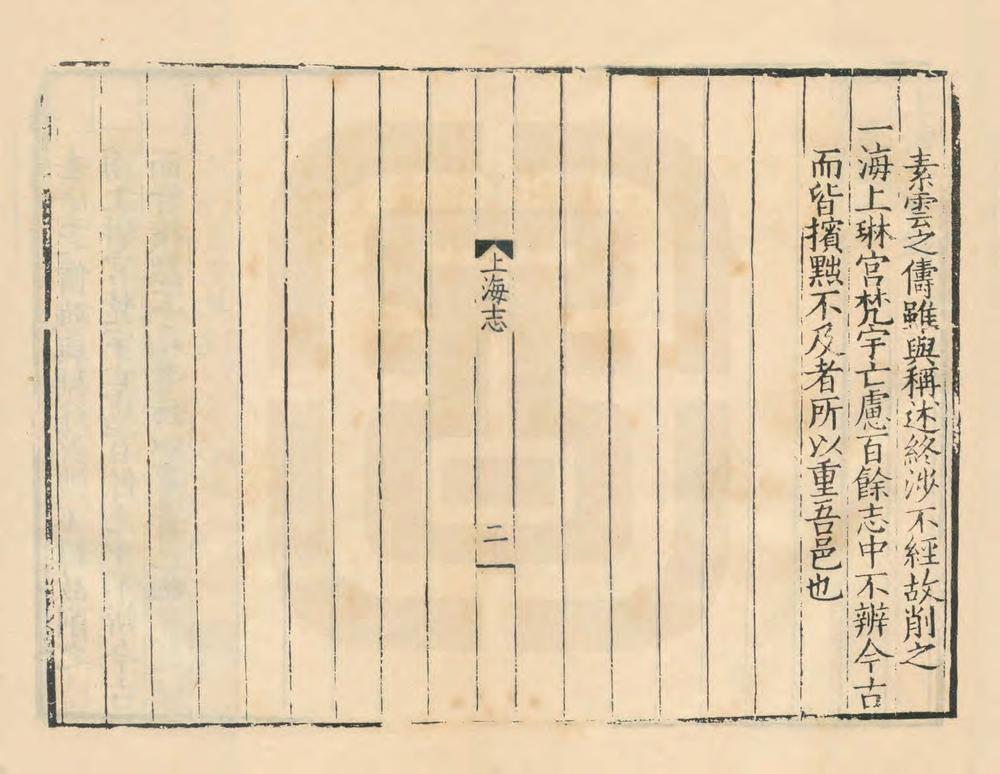 素雲之儔雖與稱述終涉不經故削之
一海上琳宮梵宇亡慮百餘志中不辨今古
而皆擯黜不及者所以重吾邑也
上海志
二